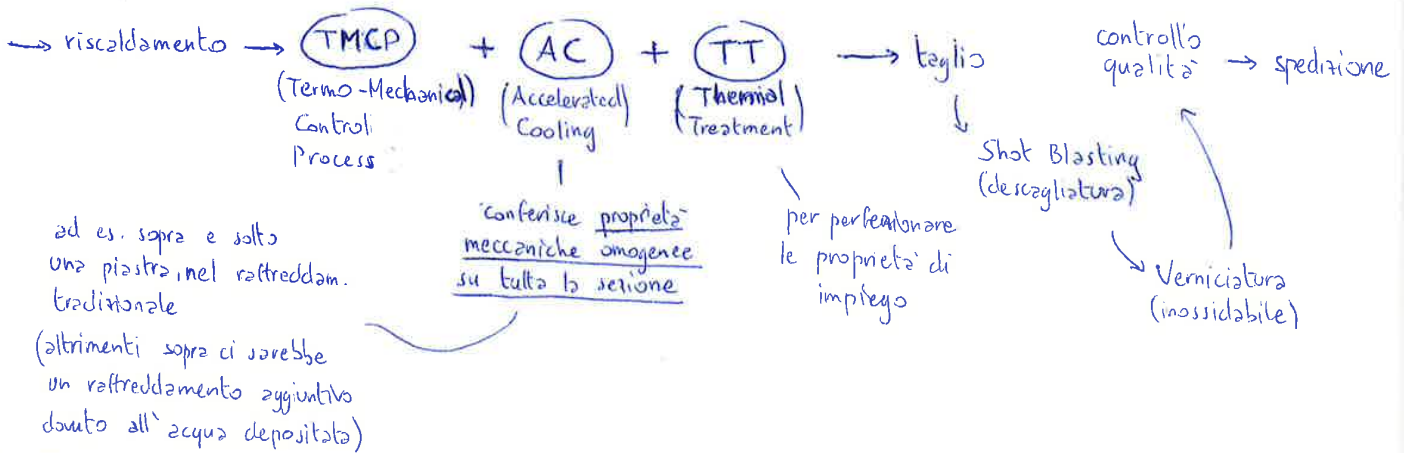 → riscaldamento → TMCP + AC + TT → taglio
(Termo-Mechanical)
Control
Process
(Accelerated)
Cooling
(Thermal
Treatment)
controllo
qualità → spedizione
Shot Blasting
(descagliatura)
Verniciatura
(inossidabile)
conferisce proprietà
meccaniche omogenee
su tutta la sezione
per perfezionare
le proprietà di
impiego
ad es. sopra e sotto
una piastra, nel raffreddam.
tradizionale
(altrimenti sopra ci sarebbe
un raffreddamento aggiuntivo
dovuto all'acqua depositata)